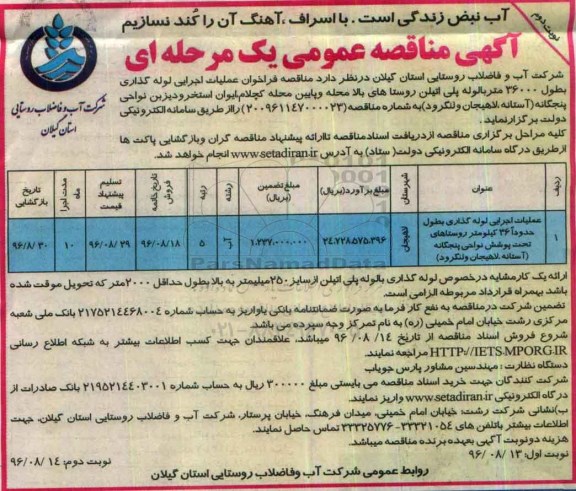 آب نبض زندگی است . با اسراف ،آهنگ آن را کُند نسازیم
نوبت دوم
آگهی مناقصه عمومی یک مرحله ای
شرکت آب و فاضلاب روستایی
استان گیلان
شرکت آب و فاضلاب روستایی استان گیلان درنظر دارد مناقصه فراخوان عملیات اجرایی لوله گذاری
بطول ۳۶۰۰۰ متربالوله پلی اتیلن روستا های بالا محله وپایین محله کچلام،ایوان استخرودیزبن نواحی
پنجگانه(آستانه.لاهیجان ولنگرود)به شماره مناقصه(۲۰۰۹۶۱۱۴۷۰۰۰۰۲۳)رااز طریق سامانه الکترونیکی
دولت برگزارنماید.
کلیه مراحل برگزاری مناقصه ازدریافت اسنادمناقصه تاارائه پیشنهاد مناقصه گران وبازگشایی پاکت ها
ازطریق درگاه سامانه الکترونیکی دولت( ستاد) به آدرس www.setadiran.ir انجام خواهد شد.
ردیف
عنوان
شهرستان
مبلغ برآورد(ریال)
مبلغ تضمین (ریال)
رشته
رتبه
تاریخ خاتمه فروش
تسلیم پیشنهاد قیمت
مدت اجرا ماه
تاریخ بازگشایی
۱
عملیات اجرایی لوله گذاری بطول
حدوداً ۳۶ کیلومتر روستاهای
تحت پوشش نواحی پنجگانه
(آستانه.لاهیجان ولنگرود)
لاهیجان
۲۴.۷۲۸.۵۷۵.۳۹۶
۱.۲۳۷.۰۰۰.۰۰۰
آب
۵
۹۶/۰۸/۱۸
۹۶/۰۸/۲۹
۱۰
۹۶/۸/۳۰
ارائه یک کارمشابه درخصوص لوله گذاری بالوله پلی اتیلن ازسایز۲۵۰میلیمتر به بالا بطول حداقل ۲۰۰۰متر که تحویل موقت شده
باشد بهمراه قرارداد مربوطه الزامی است.
تضمین شرکت درمناقصه به نفع کار فرما به صورت ضمانتنامه بانکی یاواریز به حساب شماره ۲۱۷۵۲۱۴۴۶۸۰۰۴ بانک ملی شعبه
مرکزی رشت خیابان امام خمینی (ره) به نام تمرکز وجه سپرده می باشد.
شروع فروش اسناد مناقصه از تاریخ ۱۴/ ۰۸/ ۹۶ میباشد. علاقمندان جهت کسب اطلاعات بیشتر به شبکه اطلاع رسانی
HTTP//IETS.MPORG.IR مراجعه نمایند.
دستگاه نظارت : مهندسین مشاور پارس جویاب
شرکت کنندگان جهت خرید اسناد مناقصه می بایستی مبلغ ۳۰۰۰۰۰ ریال به حساب شماره ۲۱۹۵۲۱۴۴۰۳۰۰۱ بانک صادرات از
درگاه الکترونیکی www.setadiran.ir واریز نمایند.
ب)نشانی شرکت رشت: خیابان امام خمینی، میدان فرهنگ، خیابان پرستار، شرکت آب و فاضلاب روستایی استان گیلان، جهت
اطلاعات بیشتر باتلفن های ۳۳۳۲۱۰۵۴-۳۳۳۲۵۷۷۶ تماس حاصل نمایند.
هزینه دونوبت آگهی بعهده برنده مناقصه میباشد.
نوبت اول: ۱۳ /۰۸ /۹۶
نوبت دوم: ۱۴ /۰۸/ ۹۶
روابط عمومی شرکت آب وفاضلاب روستایی استان گیلان